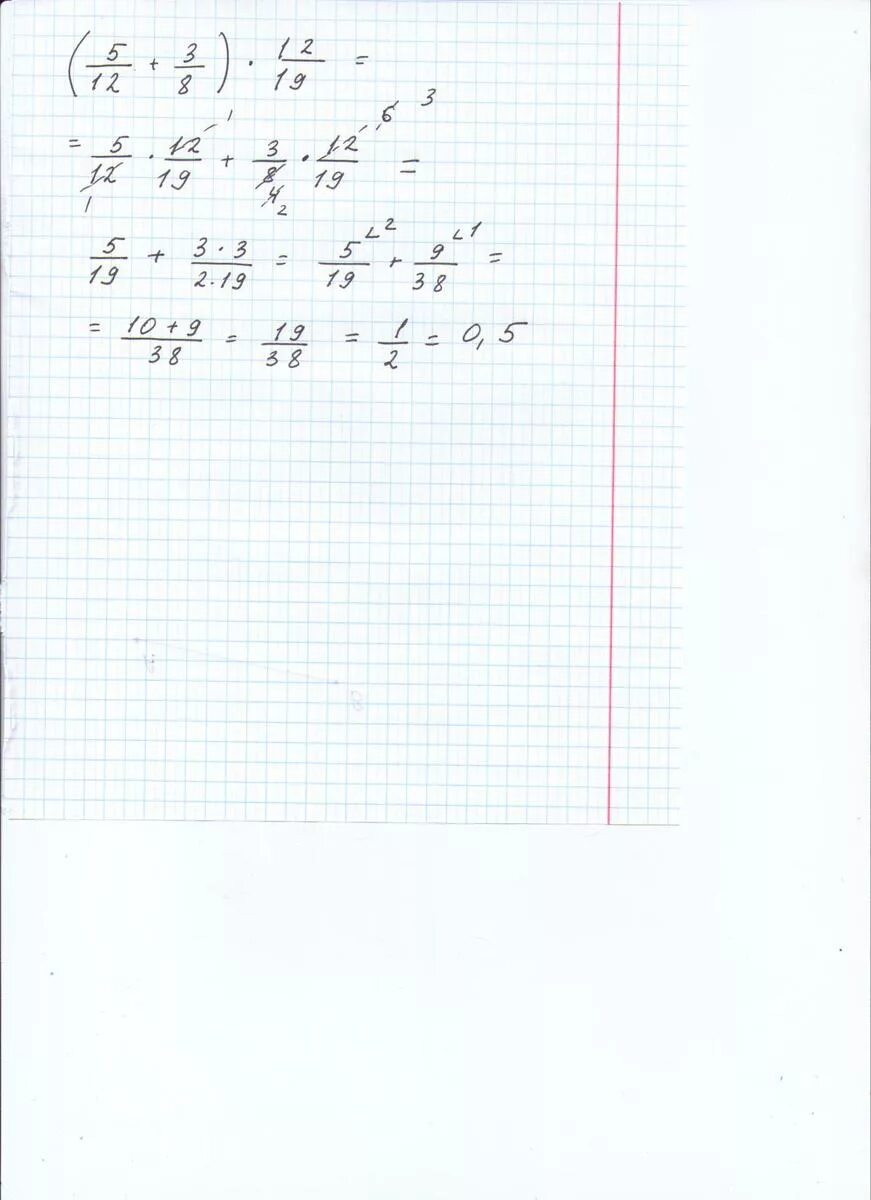 (5/12 + 3/8) · 12/19 =
= 5/12 · 12/19 + 3/8 · 12/19 =
1 1 4 2 6 3
5/19 + 3·3/2.19 = 5/19 ∠2 + 9/38 ∠1 =
= 10+9/38 = 19/38 = 1/2 = 0,5